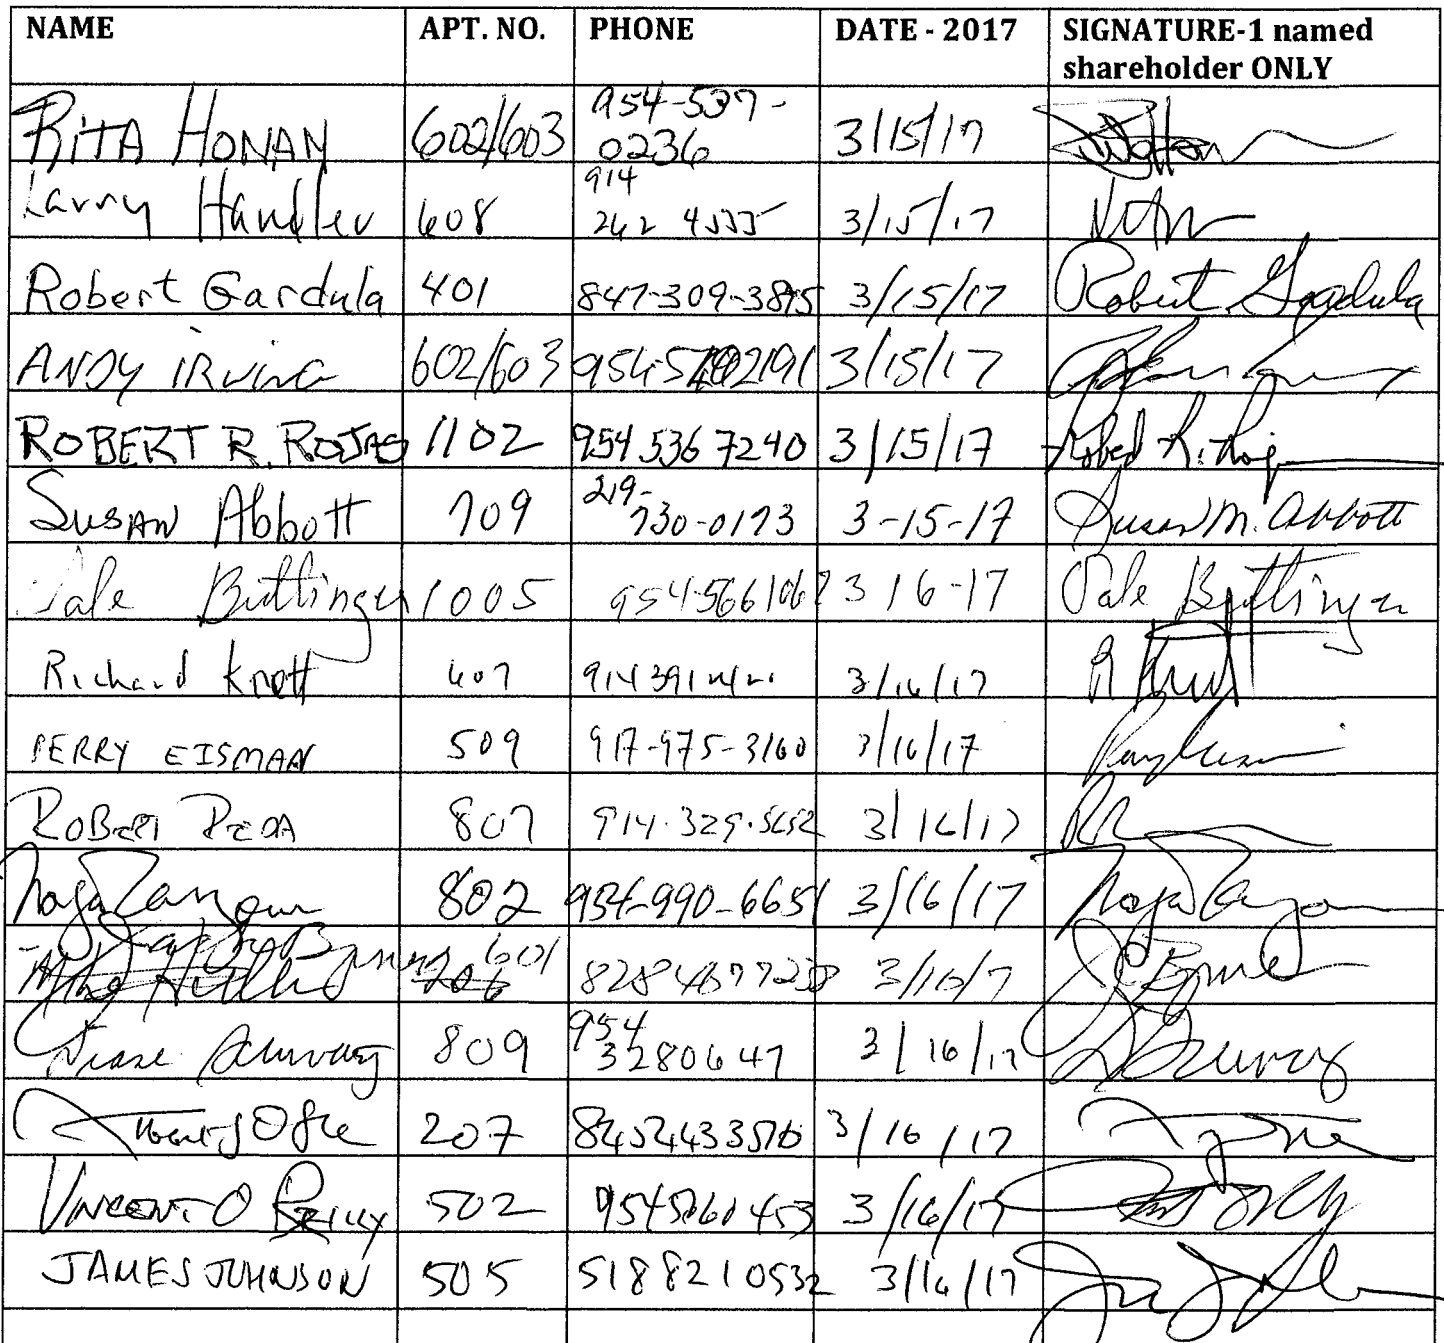 NAME APT. NO. PHONE DATE - 2017 SIGNATURE-1 named
shareholder ONLY
RITA HONAN 602/603 954-537-
0236 3/15/17
Larry Handler 608 914
262 4535 3/15/17
Robert Gardula 401 847-309-3815 3/15/17 Robert Gardula
ANDY IRVING 602/603 3/15/17
ROBERT R. ROJAS 1102 954 536 7240 3/15/17 Robert R. Rojas
SUSAN Abbott 709 219-
730-0173 3-15-17 Susan M. Abbott
Dale Buttinger 1005 954-5661062 3 16-17 Dale Buttinger
Richard Knott 607 3/16/17 R Knott
PERRY EISMAN 509 917-975-3160 3/16/17
ROBERT 807 914.329.5652 3/16/17
802 954-990-6651 3/16/17
601
206 3/16/7
Diane 809 954
3280647 3/16/17
207 3/16/17
VINCENT O REILLY 502 3/16/17
JAMES JOHNSON 505 5188210532 3/16/17